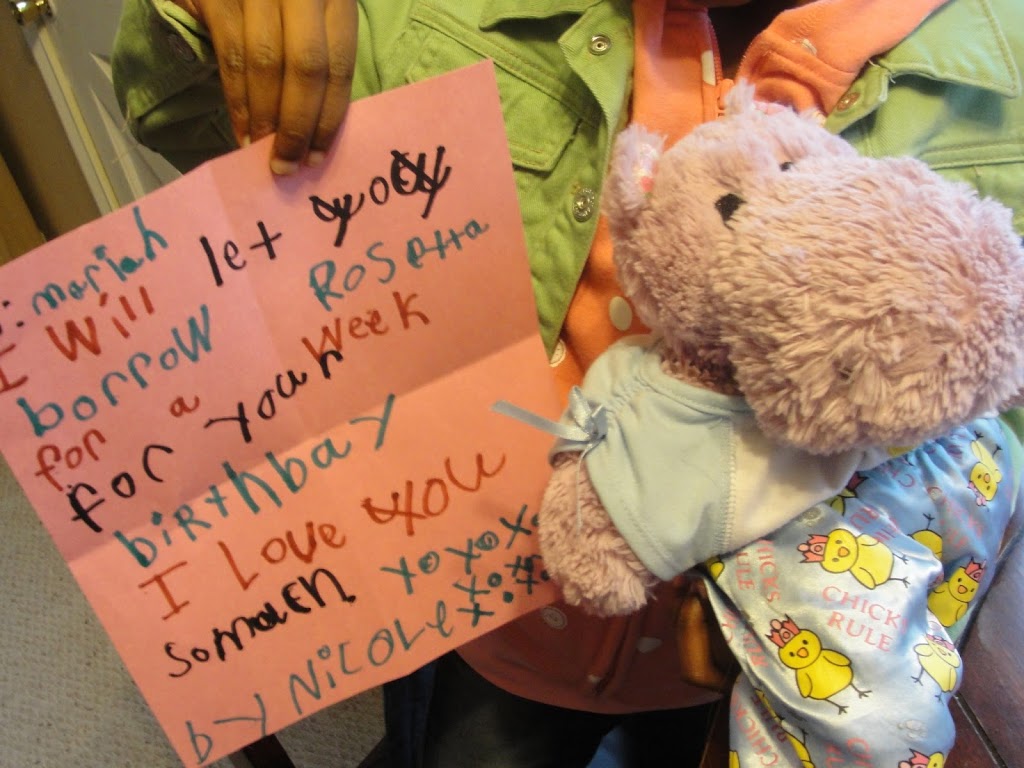 : mariah
I Will let you
borrow Rosetta
for a week
for youh
birthbay
I Love you
somuch xoxoxo
by Nicole
CHICKS
RULE
CHICKS
RULE